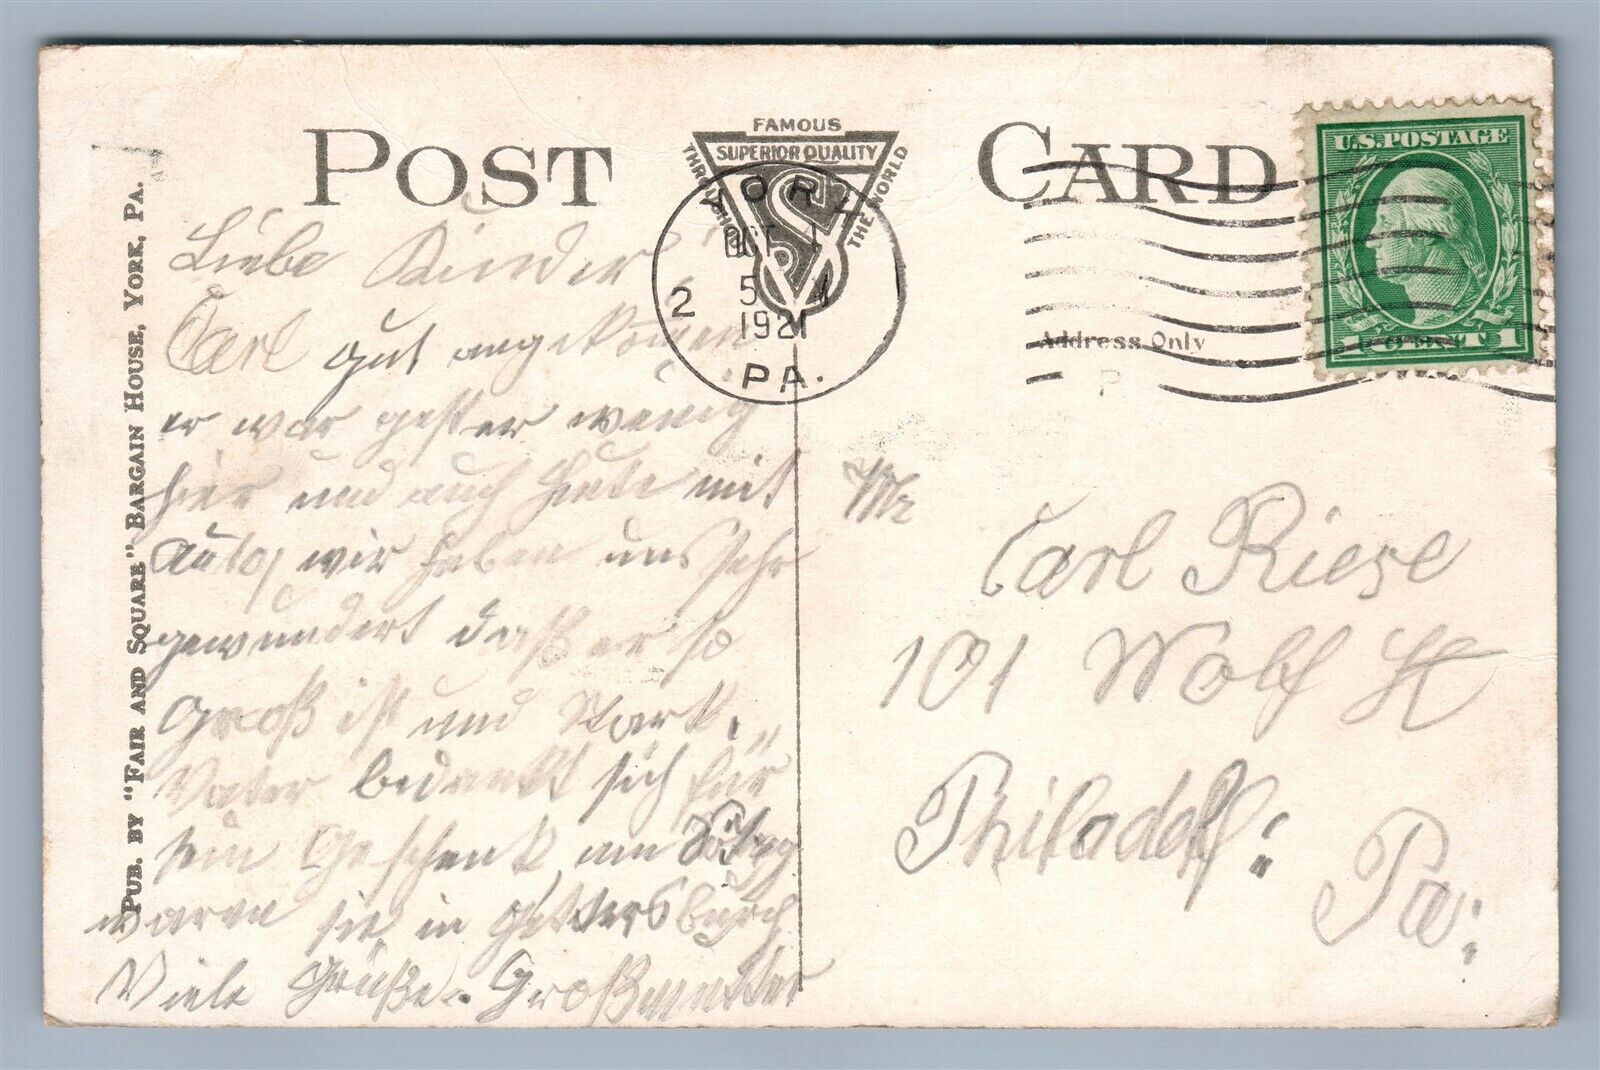 POST CARD
FAMOUS
SUPERIOR QUALITY
THROUGHOUT THE WORLD
YORK
OCT 1
5
2
1921
PA.
U.S. POSTAGE
1 CENT 1
Address Only
PUB. BY "FAIR AND SQUARE" BARGAIN HOUSE, YORK, PA.
Liebe Kinder
Carl gut angekom̄en
er war gester wenig
hier und auch Heute mit
Auto, wir haben uns sehr
gewundert daß er so
Groß ist und Stark.
Vater bedankt sich für
sein Geschenk am
waren sie in Gettersburg
Viele Grüße. Großmutter
Mr
Carl Riese
101 Wolf St
Philadelf:
Pa: